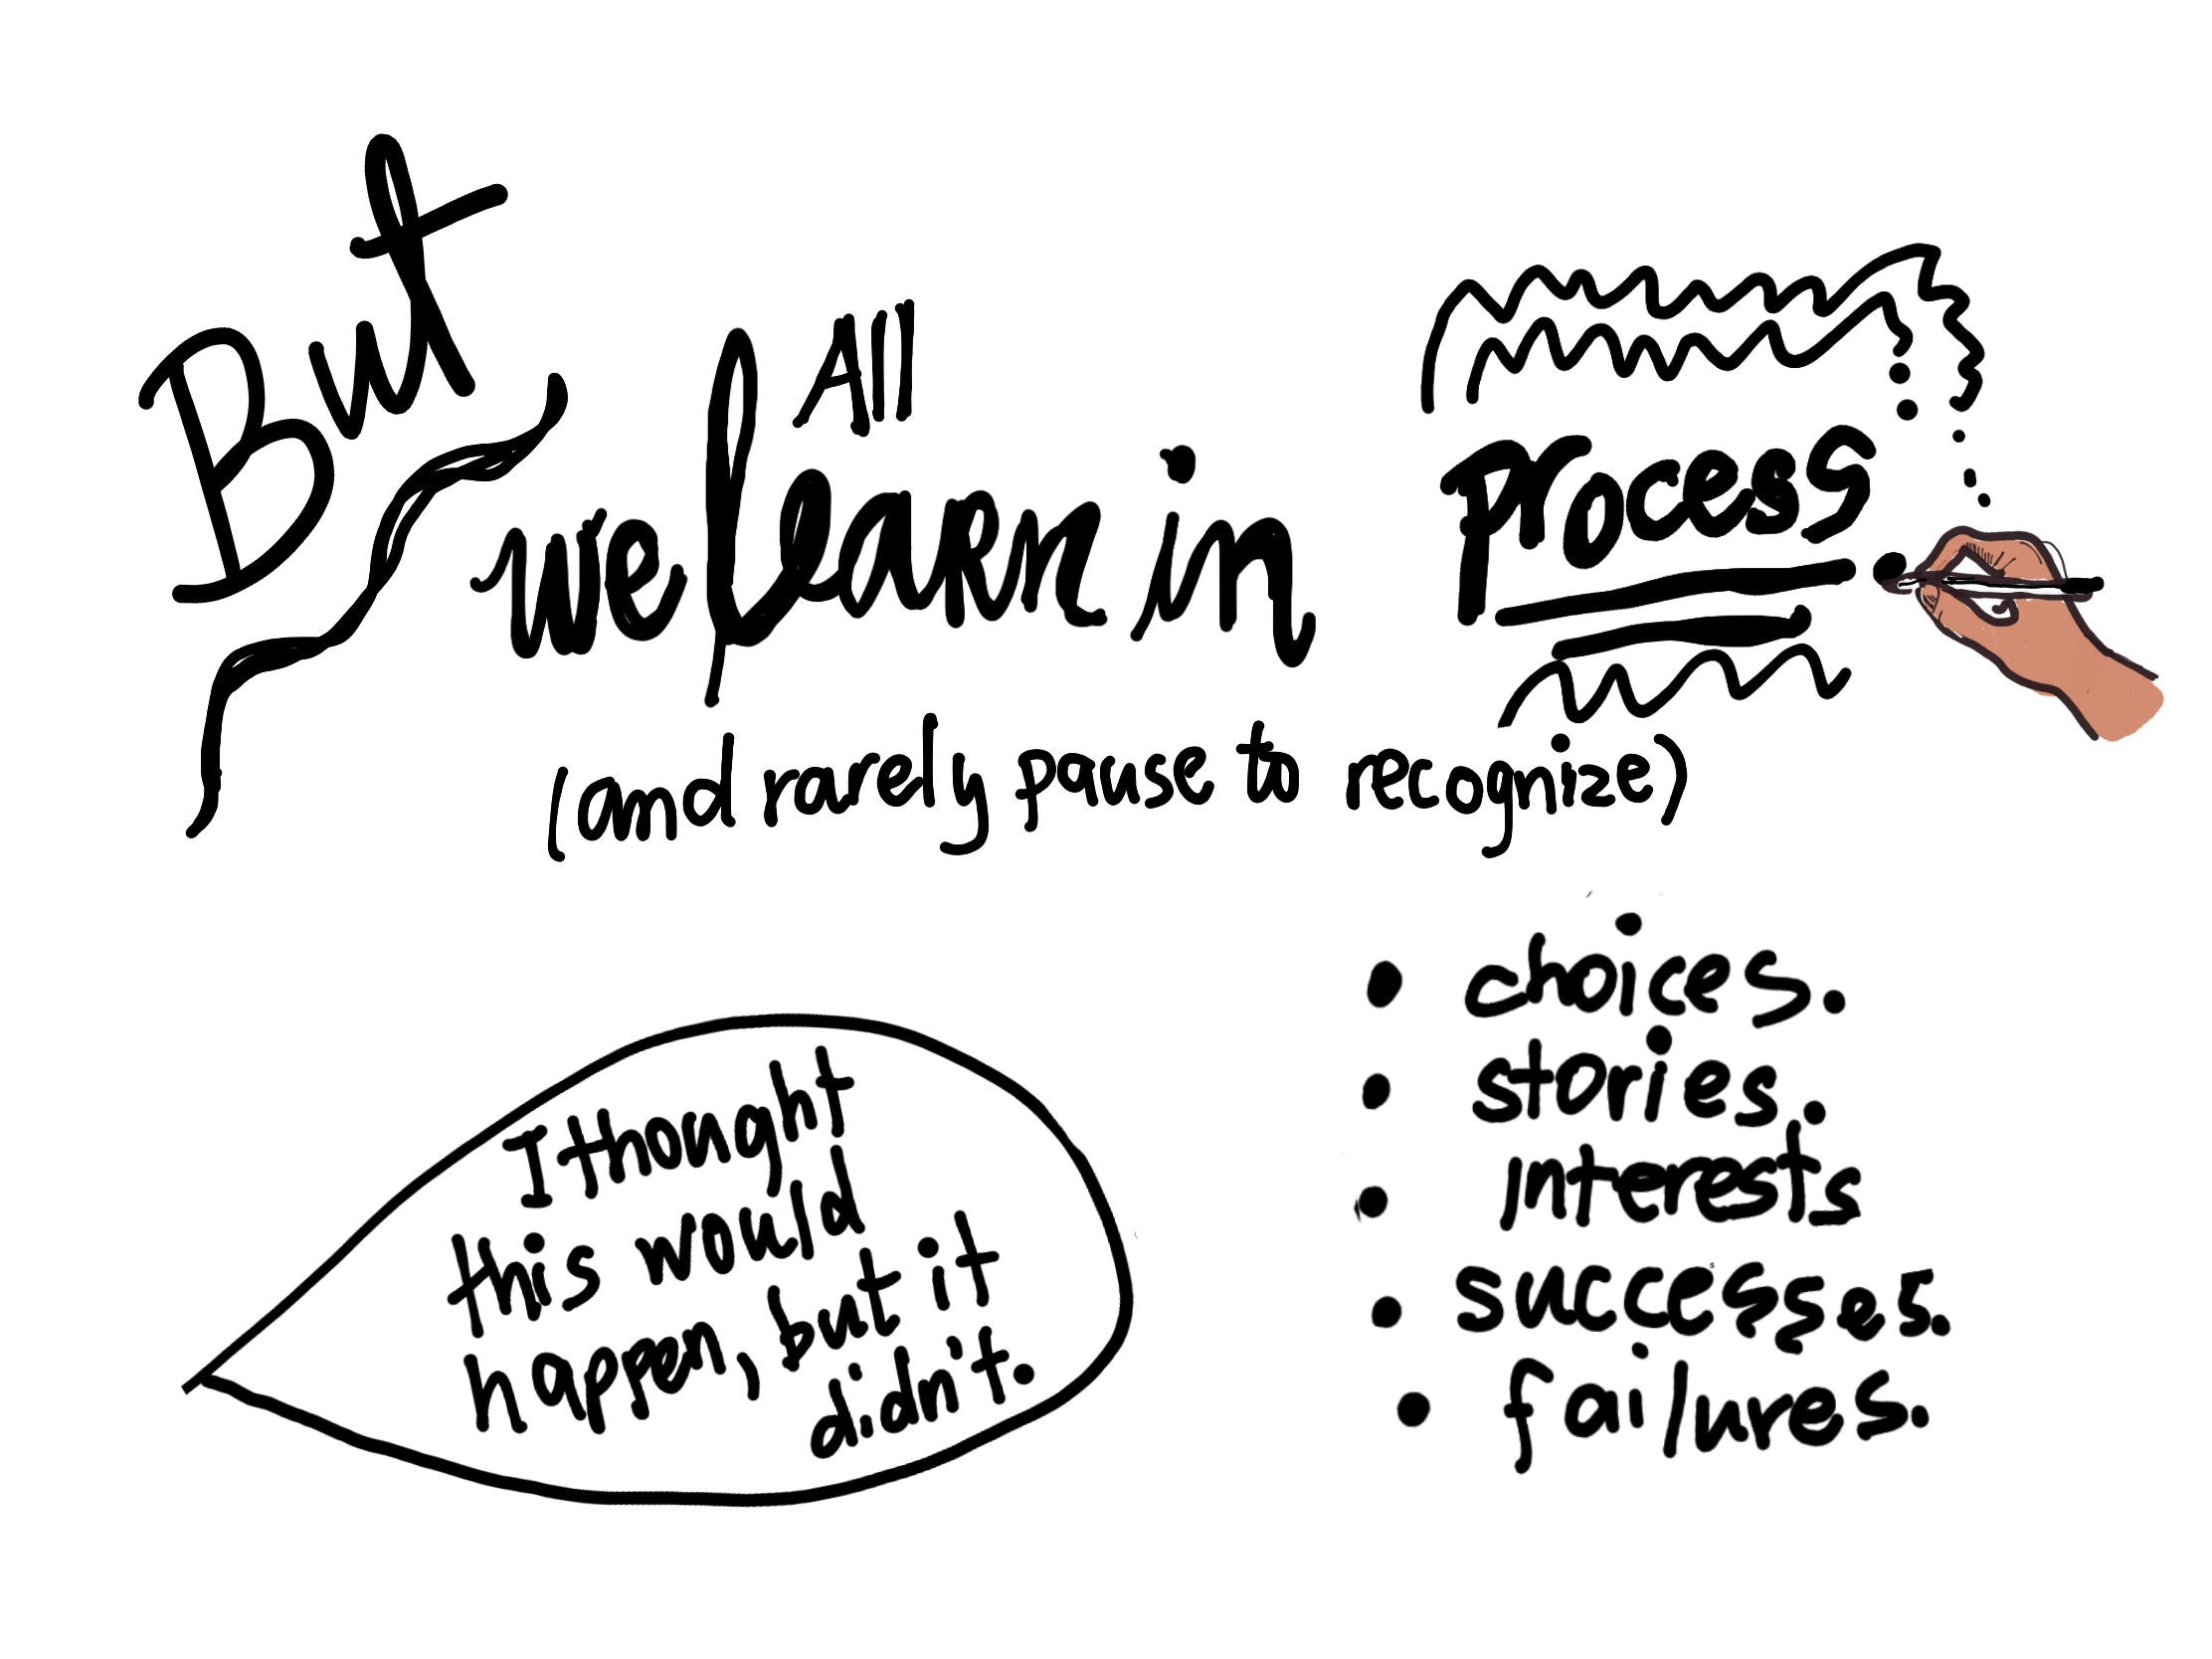 But
we All learn in process
(and rarely pause to recognize)
I thought
this would
happen, but it
didn't.
• choices.
• stories.
• interests
• successes.
• failures.